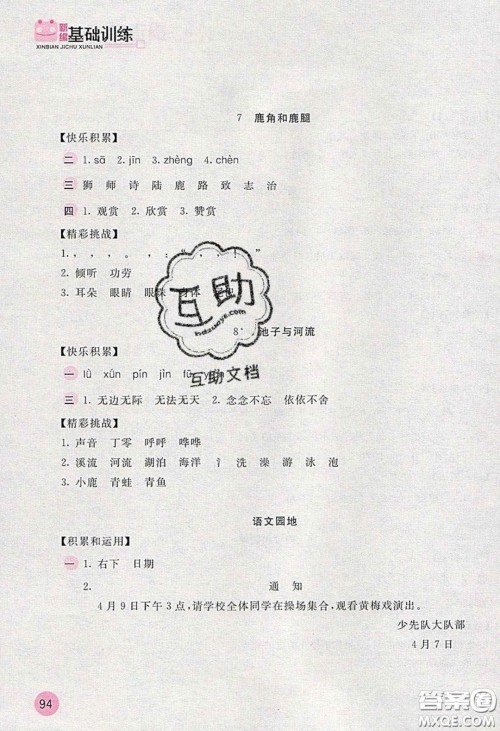 新编
基础训练
XINBIAN JICHU XUNLIAN
7 鹿角和鹿腿
【快乐积累】
二 1. sā 2. jīn 3. zhèng 4. chèn
三 狮 师 诗 陆 鹿 路 致 志 治
四 1. 观赏 2. 欣赏 3. 赞赏
【精彩挑战】
2. 倾听 功劳
3. 耳朵 眼睛 眼珠 身体
8* 池子与河流
【快乐积累】
一 lǜ xūn pín jìn
三 1. 无边无际 无法无天 2. 念念不忘 依依不舍
【精彩挑战】
1. 声音 丁零 呼呼 哗哗
2. 溪流 河流 湖泊 海洋 氵 洗 澡 游 泳 泡
3. 小鹿 青蛙 青鱼
语文园地
【积累和运用】
一 1. 右下 日期
2. 通 知
4月9日下午3点,请学校全体同学在操场集合,观看黄梅戏演出。
少先队大队部
4月7日
94
互助
hdzuoye.com
互助文档
答案圈
MXQE.COM